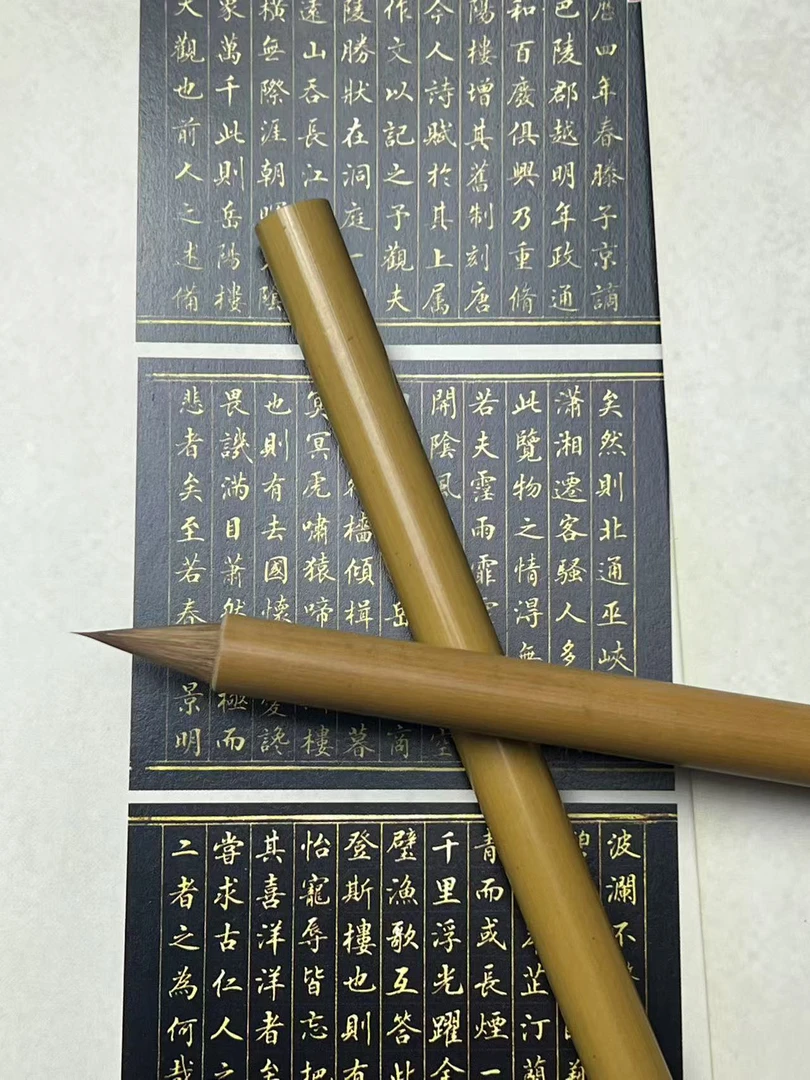 四年春滕子京謫
巴陵郡越明年政通
和百廢俱興乃重脩
陽樓增其舊制刻唐
今人詩賦於其上属
作文以記之予觀夫
陵勝狀在洞庭一
遠山吞長江
橫無際涯朝
象萬千此則岳陽樓
大觀也前人之述備
矣然則北通巫峽
瀟湘遷客騷人多
此覽物之情淂無
若夫霪雨霏
開陰風空
岳商
檣傾楫暮
冥冥虎嘯猿啼樓
也則有去國懷讒
畏譏滿目蕭然極而
悲者矣至若春景明
波瀾不
碧
芷汀蘭
青而或長煙一
千里浮光躍金
璧漁歌互答此
登斯樓也則有
怡寵辱皆忘把
其喜洋洋者矣
嘗求古仁人之
二者之為何哉